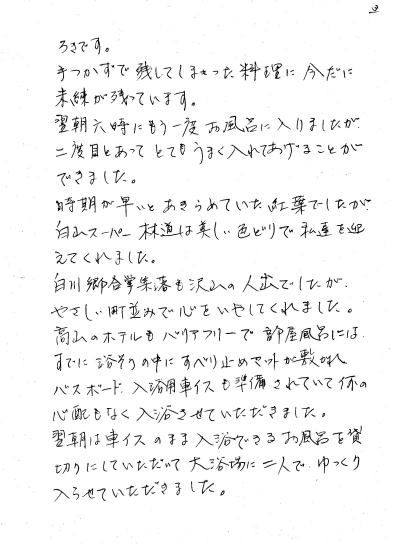 ろさです。
手つかずで残してしまった料理に今だに
未練が残っています。
翌朝六時にもう一度お風呂に入りましたが、
二度目とあってとてもうまく入れてあげることが
できました。
時期が早いとあきらめていた紅葉でしたが、
白山スーパー林道は美しい色どりで私達を迎
えてくれました。
白川郷合掌集落も沢山の人出でしたが、
やさしい町並みで心をいやしてくれました。
高山のホテルもバリアフリーで部屋風呂には、
すでに浴そうの中にすべり止めマットが敷かれ
バスボード、入浴用車イスも準備されていて何の
心配もなく入浴させていただきました。
翌朝は車イスのまま入浴できるお風呂を貸
切りにしていただいて大浴場に二人でゆっくり
入らせていただきました。